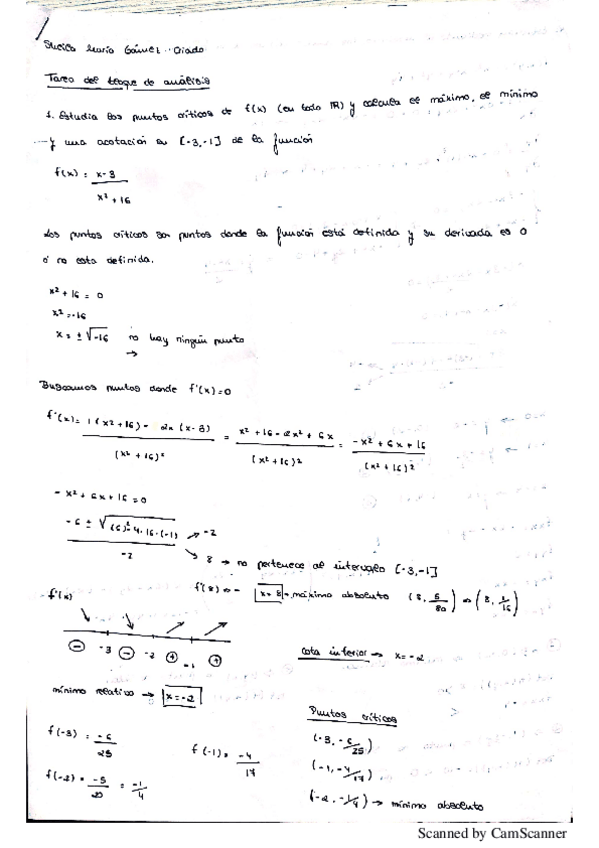 María Gámez Criado
Tarea del bloque de análisis
1. Estudia los puntos críticos de f(x) (en todo ℝ) y calcula el máximo, el mínimo
y una acotación en [-3,-1] de la función
f(x) = x-3 / x² + 16
Los puntos críticos son puntos donde la función está definida y su derivada es 0
ó no esta definida.
x² + 16 = 0
x² = -16
x = ± √-16 no hay ningún punto
→
Buscamos puntos donde f'(x)=0
f'(x) = 1(x²+16) - 2x(x-3) / (x²+16)² = x² + 16 - 2x² + 6x / (x²+16)² = -x² + 6x + 16 / (x²+16)²
- x² + 6x + 16 = 0
-6 ± √(6)²-4·16·(-1) / -2 → -2
→ 8 → no pertenece al intervalo [-3,-1]
f'(x) f'(8) = - x=8 → máximo absoluto (8, 5/80) → (8, 1/16)
⊖ -3 ⊖ -2 ⊕ -1 ⊕
cota inferior → x = -2
mínimo relativo → x=-2
Puntos críticos
f(-3) = -6/25 f(-1) = -4/17
(-3, -6/25)
(-1, -4/17)
f(-2) = -5/20 = -1/4
(-2, -1/4) → mínimo absoluto
Scanned by CamScanner